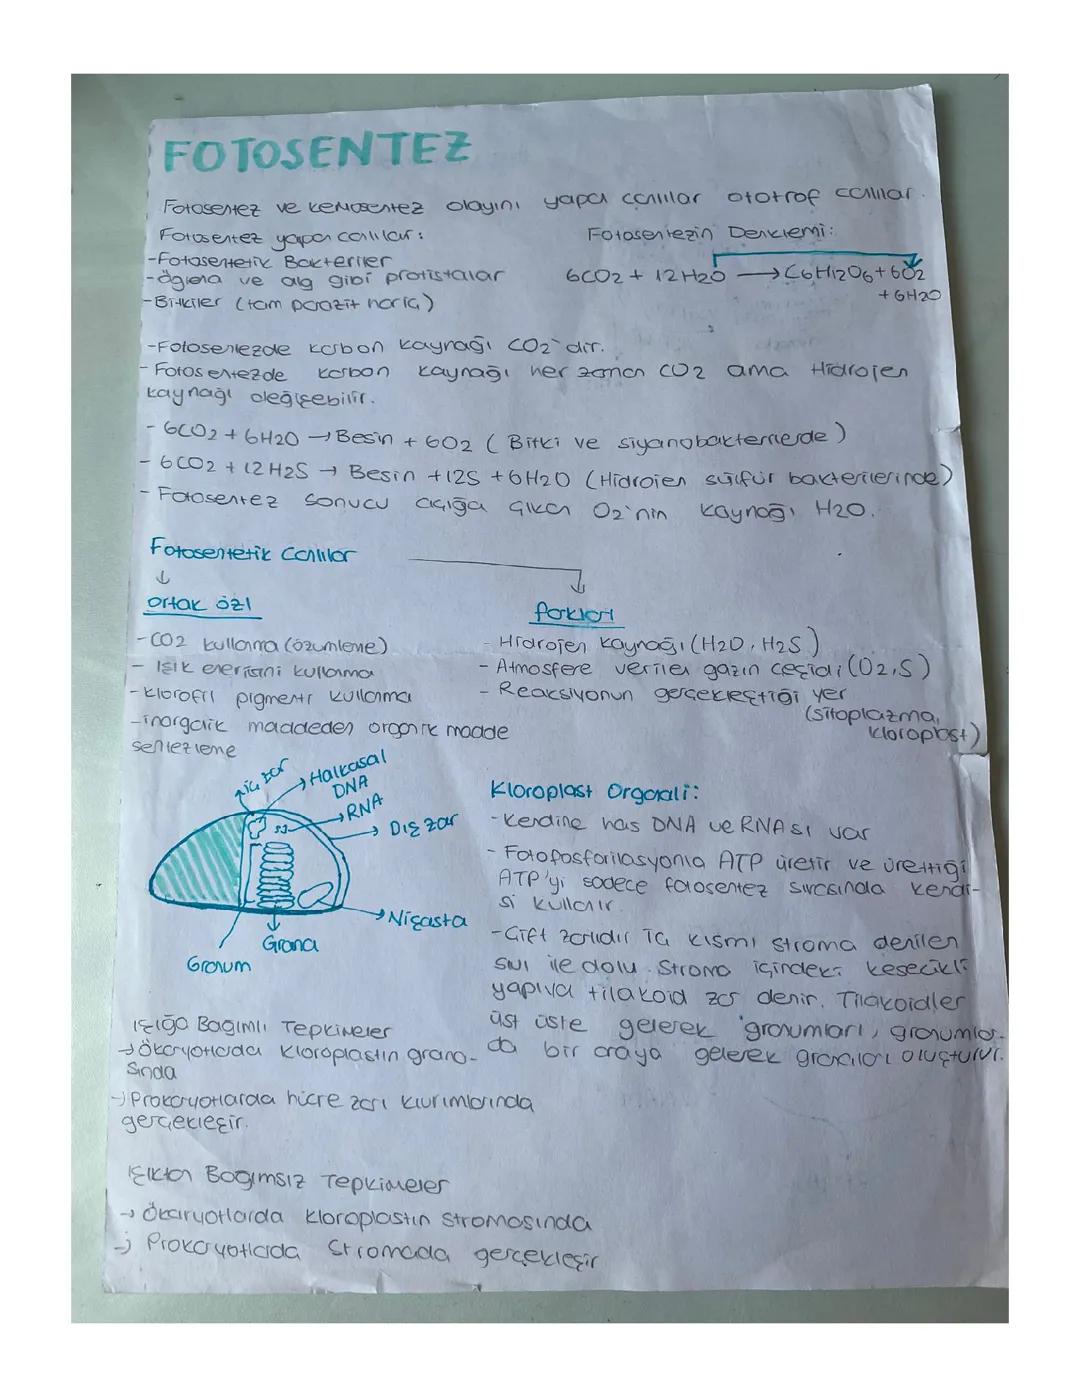 FOTOSENTEZ
Fotosentez ve kemosentez olayını yapan canlılar ototrof canlılar.
Fotosentez yapan canlılar:
-Fotosentetik Bakteriler
-öglena ve alg gibi protistalar
-Bitkiler (tam parazit hariç)
Fotosentezin Denklemi:
6CO2 + 12H2O → C6H12O6 + 6O2
+ 6H2O
-Fotosentezde karbon kaynağı CO2'dir.
-Fotosentezde karbon kaynağı her zaman CO2 ama Hidrojen
kaynağı değişebilir.
- 6CO2 + 6H2O → Besin + 6O2 (Bitki ve siyanobakterilerde)
- 6CO2 + 12H2S → Besin +12S +6H2O (Hidrojen sülfür bakterilerinde)
- Fotosentez sonucu açığa çıkan O2'nin kaynağı H2O.
Fotosentetik Canlılar
ortak özl
-CO2 kullanma (özümleme)
- Işık enerjisini kullanma
-klorofil pigmenti kullanma
-inorganik maddeden organik madde
sentezleme
farkları
- Hidrojen kaynağı (H2O, H2S)
- Atmosfere verilen gazın çeşidi (O2,S)
- Reaksiyonun gerçekleştiği yer
(sitoplazma,
kloroplast)
iç zar
Halkasal
DNA
RNA
Dış zar
Nişasta
Grana
Granum
Kloroplast Organali:
-Kendine has DNA ve RNA sı var
- Fotofosforilasyonla ATP üretir ve ürettiği
ATP'yi sadece fotosentez sırasında kendi-
si kullanır.
-Çift zarlıdır iç kısmı stroma denilen
sıvı ile dolu. Stroma içindeki kesecikli
yapıya tilakoid zar denir. Tilakoidler
üst üste gelerek granumları, granumlar-
da bir araya gelerek granaları oluşturur.
Işığa Bağımlı Tepkimeler
→Ökaryotlarda kloroplastın grana-
sında
→Prokaryotlarda hücre zarı kıvrımlarında
gerçekleşir.
Işıktan Bağımsız Tepkimeler
→ ökaryotlarda kloroplastın stromasında
→ Prokaryotlarda stromada gerçekleşir